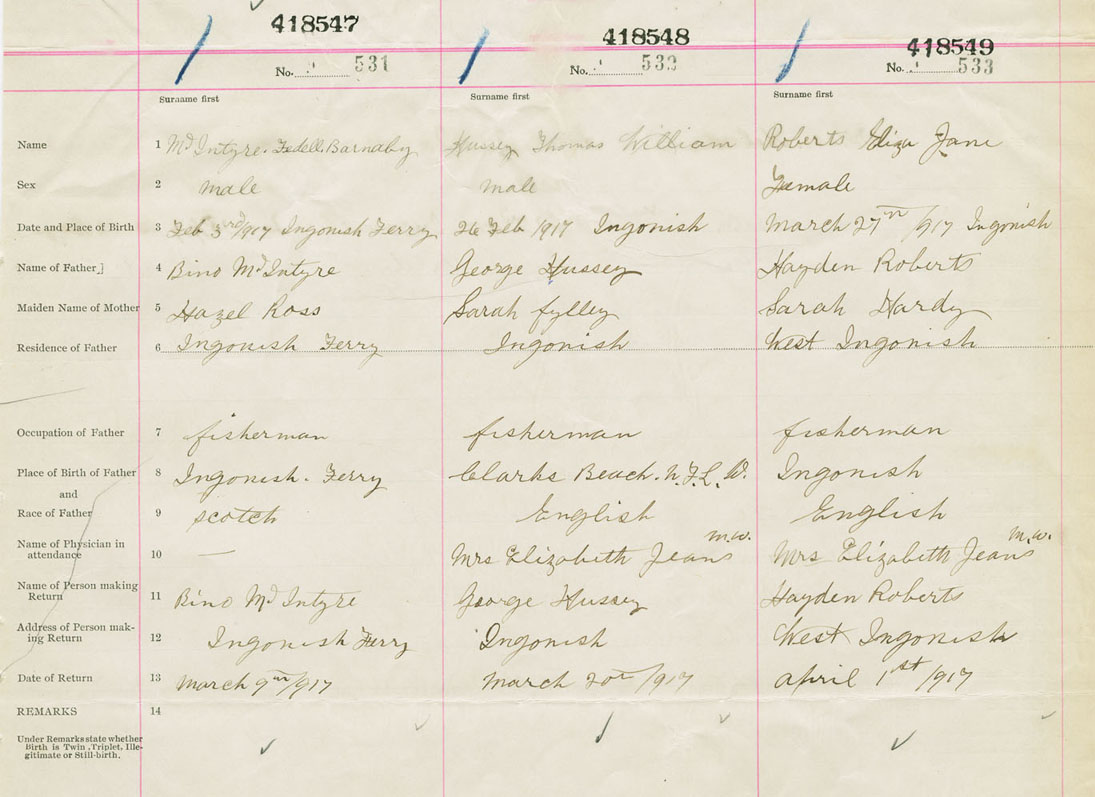 418547 418548 418549
No. 531 No. 532 No. 533
Surname first Surname first Surname first
Name 1 McIntyre. Fedell Barnaby Hussey Thomas William Roberts Eliza Jane
Sex 2 male male Female
Date and Place of Birth 3 Feb 3rd/1917 Ingonish Ferry 26 Feb 1917 Ingonish March 27th /1917 Ingonish
Name of Father] 4 Bino McIntyre George Hussey Hayden Roberts
Maiden Name of Mother 5 Hazel Ross Sarah Hardy
Residence of Father 6 Ingonish Ferry Ingonish West Ingonish
Occupation of Father 7 fisherman fisherman fisherman
Place of Birth of Father 8 Ingonish. Ferry Clarks Beach. N.F.L.D. Ingonish
and
Race of Father 9 scotch English English
Name of Physician in
attendance 10 — Mrs Elizabeth Jeans m.w. Mrs Elizabeth Jeans m.w.
Name of Person making
Return 11 Bino McIntyre George Hussey Hayden Roberts
Address of Person mak-
ing Return 12 Ingonish Ferry Ingonish West Ingonish
Date of Return 13 March 9th/1917 March 20th /1917 April 1st /1917
REMARKS 14
Under Remarks state whether
Birth is Twin, Triplet, Ille-
gitimate or Still-birth.